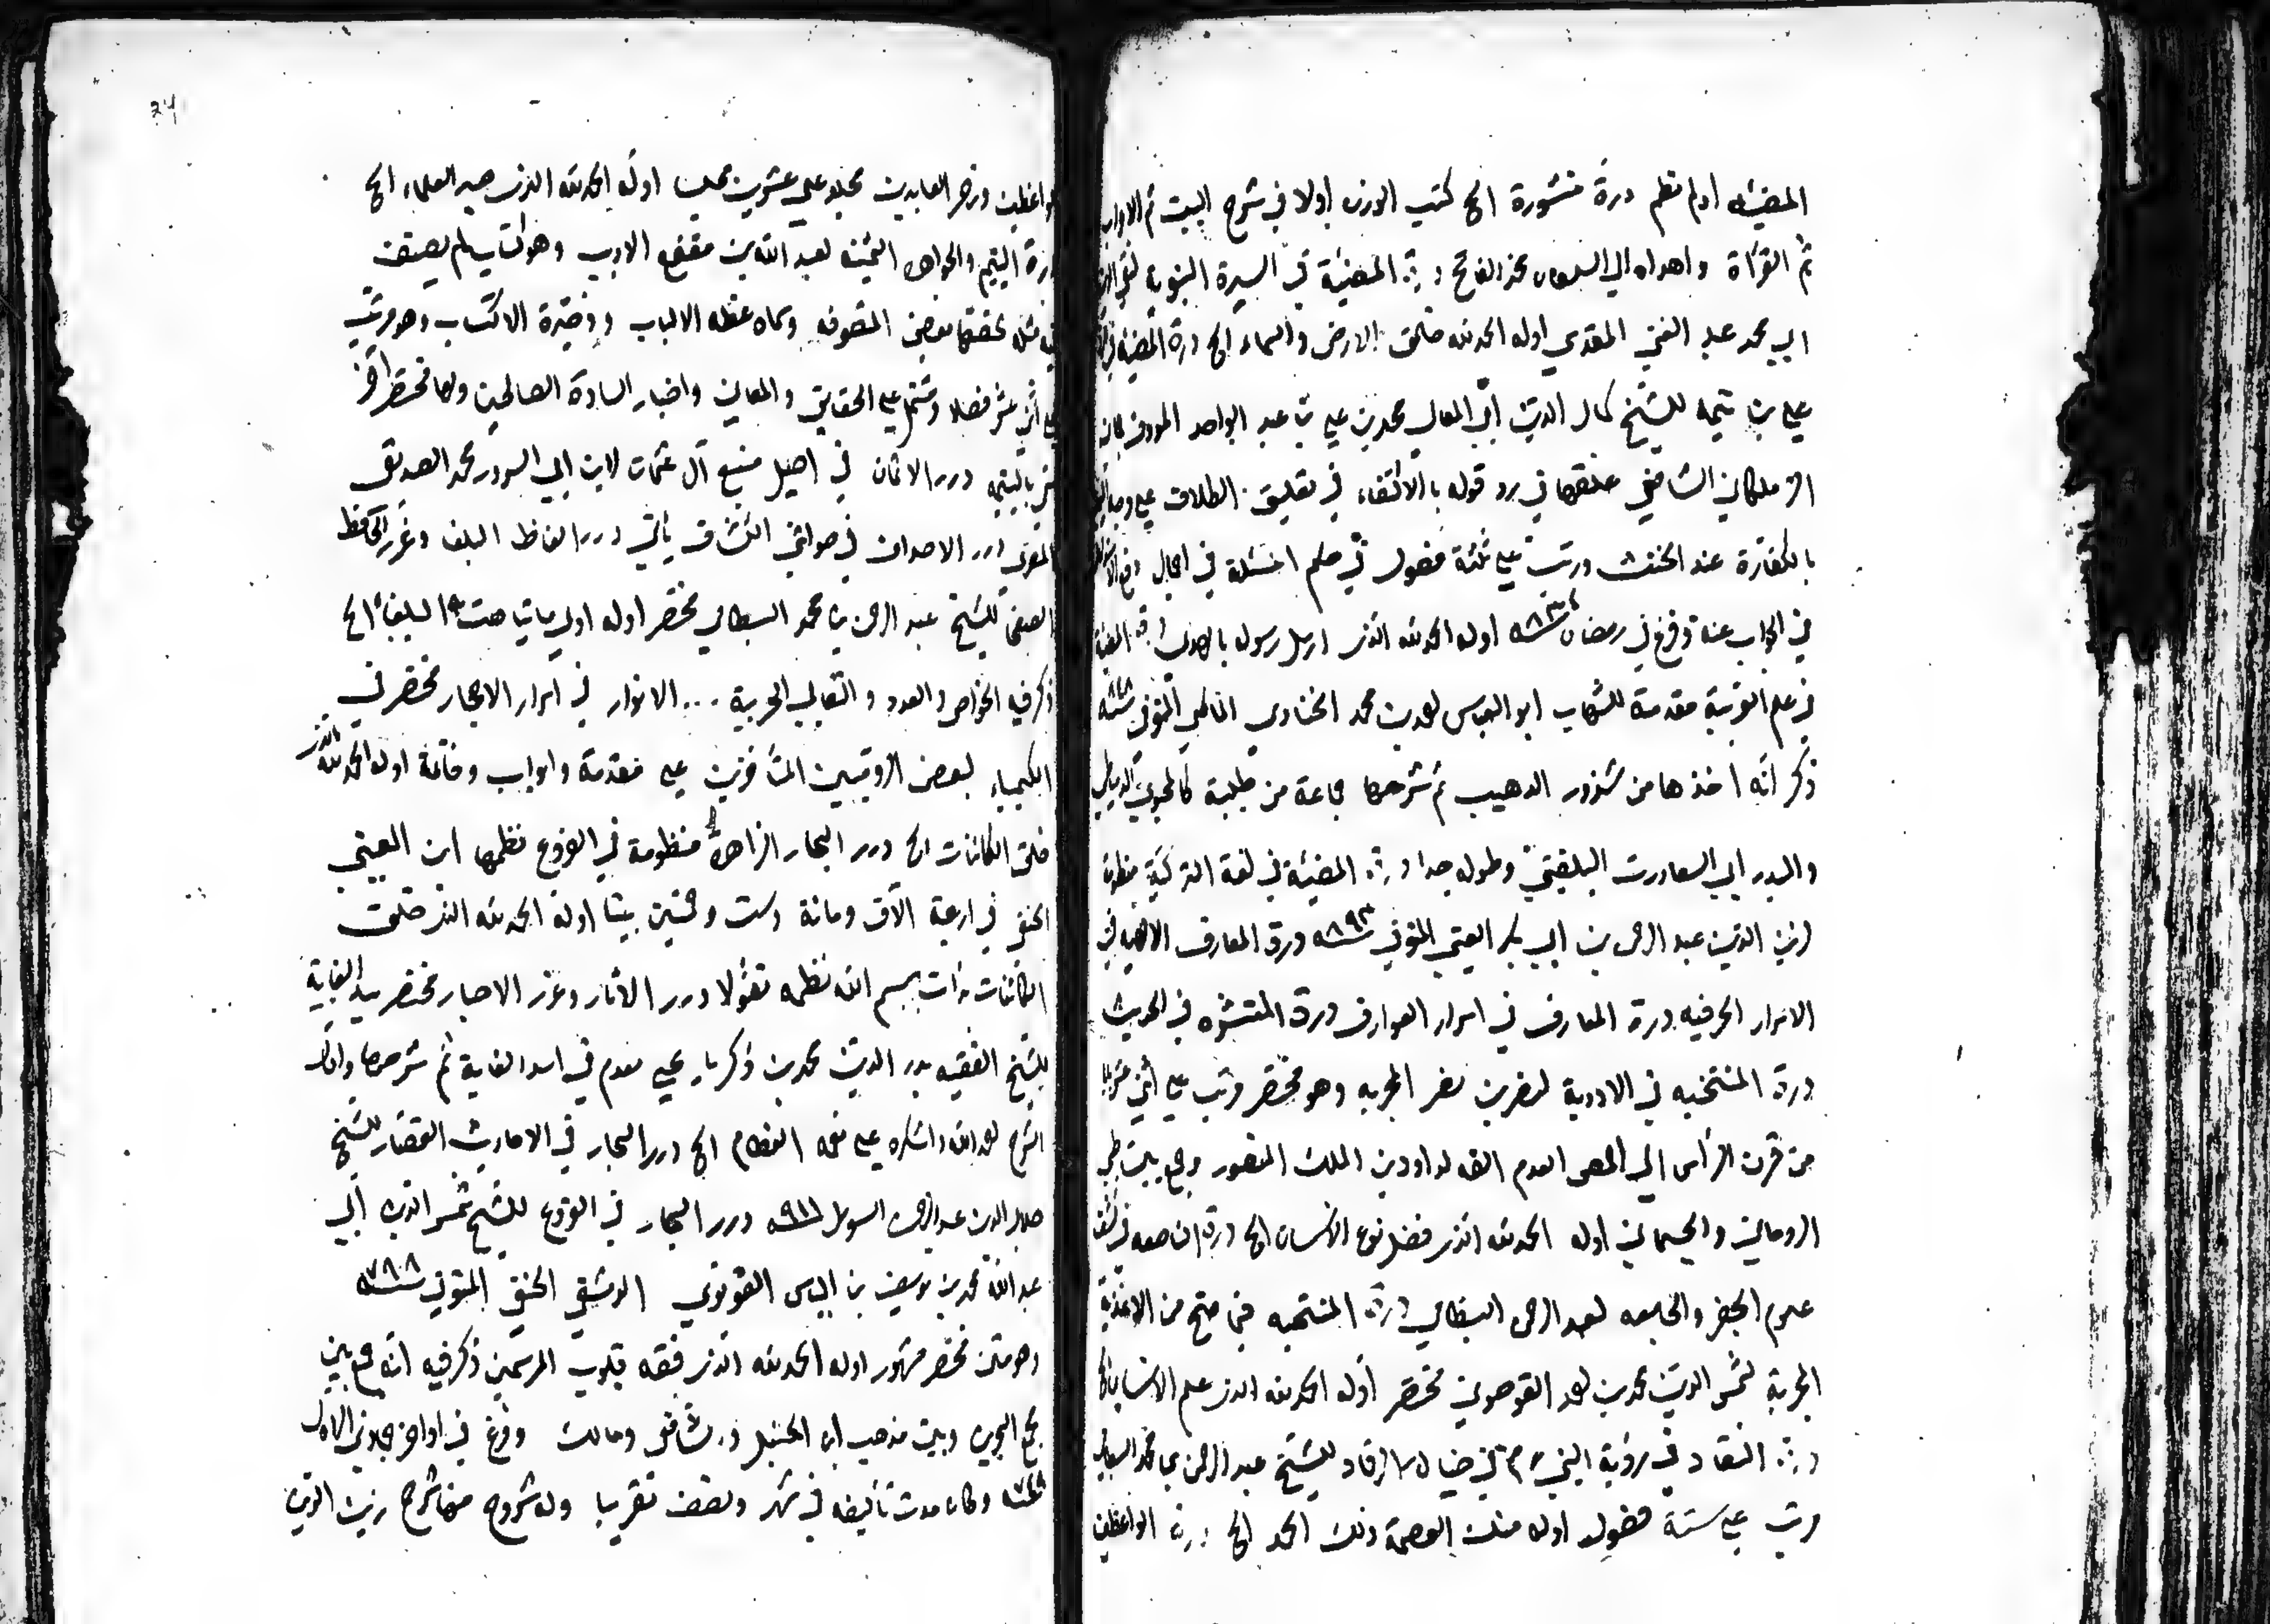 المضيئة اولها نظم درة منثورة الخ كتب الوزن اولا في شرح البيت ثم الاعراب
ثم القرأة واهداه الى السلطان محمد الفاتح درة المضيئة في السيرة النبوية
ابي محمد عبد الغني المقدسي اوله الحمد لله خالق الارض والسماء الخ درة المضيئة في الرد
على بن تيميه للشيخ كمال الدين ابي المعالي محمد بن علي بن عبد الواحد المعروف بابن
الزملكاني الشافعي علقها في رد قوله بالاكتفاء في تعليق الطلاق على وجه اليمين
بالكفارة عند الحنث ورتب على ثلثة فصول في حكم المسئلة في
في الجواب عنه وفرغ في رمضان اوله الحمد لله الذي ارسل رسوله بالهدى درة المضيئة
في علم العربية مقدمة للشهاب ابو العباس احمد بن محمد الحناوي المالكي المتوفى ٨٤٨ سنه
ذكر انه اخذها من شذور الذهب ثم شرحها جماعة من طلبة كالمحيوي الدمياطي
والبدر ابي السعادات البلقيني وطوله جدا درة المضيئة في لغة التركية منظومة
لزين الدين عبد الرحمن بن ابي بكر العيني المتوفى سنه ٨٩٣ درة المعارف الالهيه في
الاسرار الحرفيه درة المعارف في اسرار العوارف درة المنتشره في الحديث
درة المنتخبه في الادوية لنصر بن نصر المجربه وهو مختصر مرتب على اثنى عشر بابا
من قرن الرأس الى اخمص القدم الفه لداود بن الملك المنصور وجمع بين طبي
الروحاني والجسماني اوله الحمد لله الذي فضل نوع الانسان الخ درة الناصعه في كشف
علوم الجفر والجامعه لعبد الرحمن البسطامي درة المنتخبه فيما صح من الاغذية
المجربة لشمس الدين محمد بن احمد القوصوني مختصر اوله الحمد لله الذي علم الانسان الخ
درة النقاد في رؤية النبي م في خيال الرقاد للشيخ عبد الرحمن بن محمد البسطامي
مرتب على ستة فصول اوله منك العصمة ولك الحمد الخ درة الواعظين
الواعظين وذخر العابدين مجلد على عشرين مجلسا اوله الحمد لله الذي صير العلماء الخ
درة اليتيم والجواهر الثمينه لعبد الله بن مقفع الاديب وهو كتاب لم يصنف
في مثله لخصها بعض المتصوفه وسماه عظه الالباب وذخيرة الاكتساب وهو مرتب
على اثنى عشر فصلا ومشتمل على الحقايق والمعاني واخبار السادة الصالحين ولها مختصر آخر
باليتيمه درر الاثمان في اصيل منبع آل عثمان لابن ابي السرور محمد الصديقي
المقري درر الاصداف في حواشي الكشاف ياتي درر الفاظ البلغا وغرر الحفاظ
للشيخ عبد الرحمن بن محمد البسطامي مختصر اوله اولى ما تباحت البلغاء الخ
ذكر فيه الخواص والعدد والتعابي الحربية درر الانوار في اسرار الاحجار مختصر في
الكيمياء لبعض الروميين المتأخرين على مقدمة وابواب وخاتمة اوله الحمد لله الذي
خلق الكائنات الخ درر البحار الزاهرة منظومة في الفروع نظمها ابن العيني
الحنفي في اربعة آلاف ومائة وست وخمسين بيتا اوله الحمد لله الذي خلق
الكائنات بدأت ببسم الله نظمه تقولا درر الآثار وغرر الاخبار مختصر
للشيخ الفقيه بدر الدين محمد بن زكريا يحيى ثم شرحها واول
الشرح احمد الله واشكره على نعمه العظام الخ درر البحار في الاحاديث القصار للشيخ
جلال الدين عبد الرحمن السيوطي ٩١١ درر البحار في الفروع للشيخ شمس الدين ابي
عبد الله محمد بن يوسف بن الياس القونوي الدمشقي الحنفي المتوفى سنه ٧٨٨
وهو متن مختصر مشهور اوله الحمد لله الذي فقه قلوب ذكر فيه انه جمع بين
مجمع البحرين وبين مذهب ابن الحنبل وشافعي ومالك وفرغ في اواخر جمادى الاولى
وكان مدت تأليفه في شهر ونصف تقريبا وله شروح منها شرح زين الدين